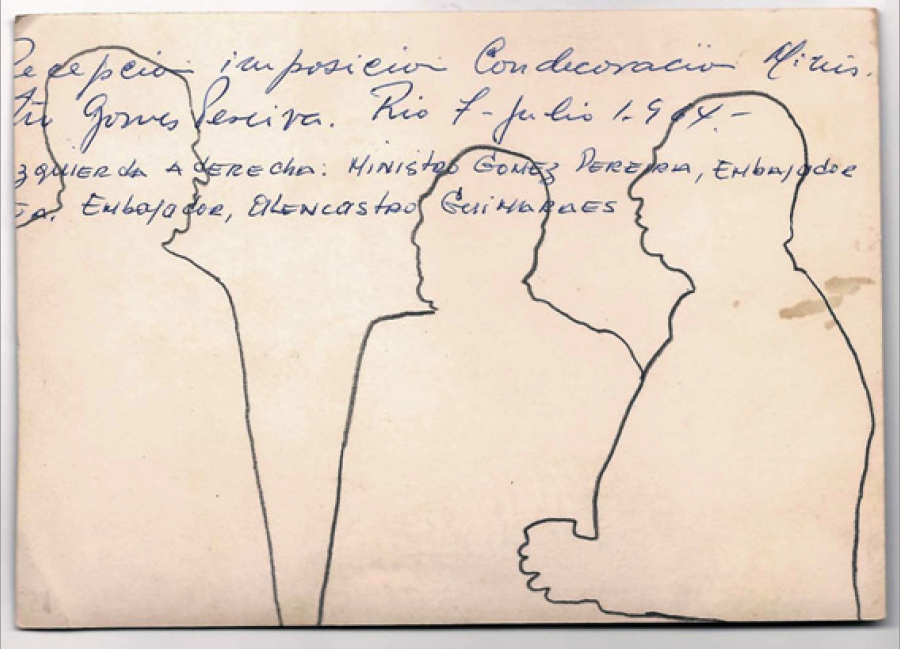 Recepción imposición Condecoración Minis.
tro Gomes Pereira. Rio 7-Julio 1.964.-
zquierda A derecha: Ministro Gomez Pereira, Embajador
Embajador, Alencastro Guimaraes